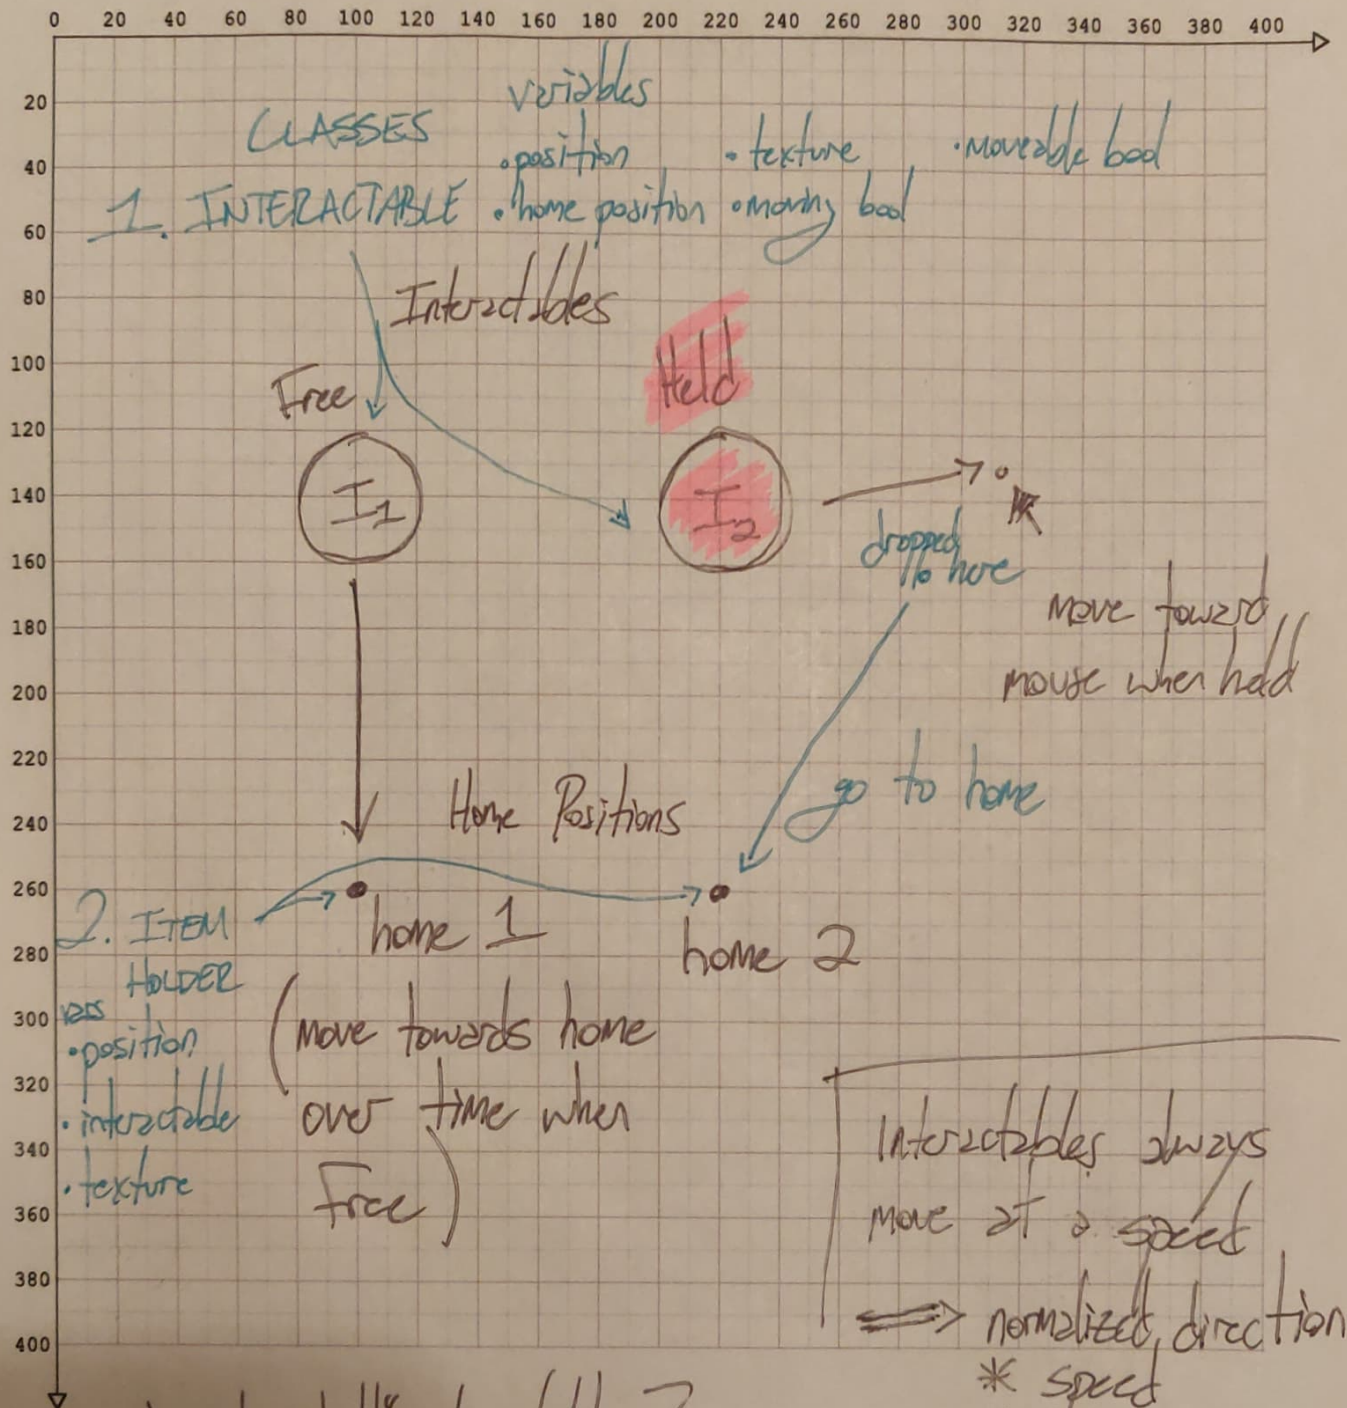 0 20 40 60 80 100 120 140 160 180 200 220 240 260 280 300 320 340 360 380 400
20
40
60
80
100
120
140
160
180
200
220
240
260
280
300
320
340
360
380
400
CLASSES
variables
• position • texture • moveable bool
1. INTERACTABLE • home position • moving bool
Interactables
Free
Held
I1
I2
dropped
to here
move toward
mouse when held
go to home
Home Positions
home 1
home 2
2. ITEM
HOLDER
vars
• position
• interactable
• texture
(move towards home
over time when
Free)
Interactables always
move at a speed
normalized direction
* speed